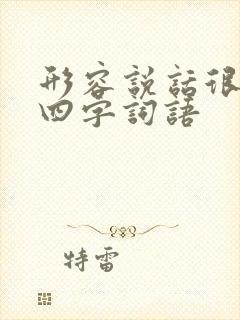 形容説話很
四字詞語
特雷